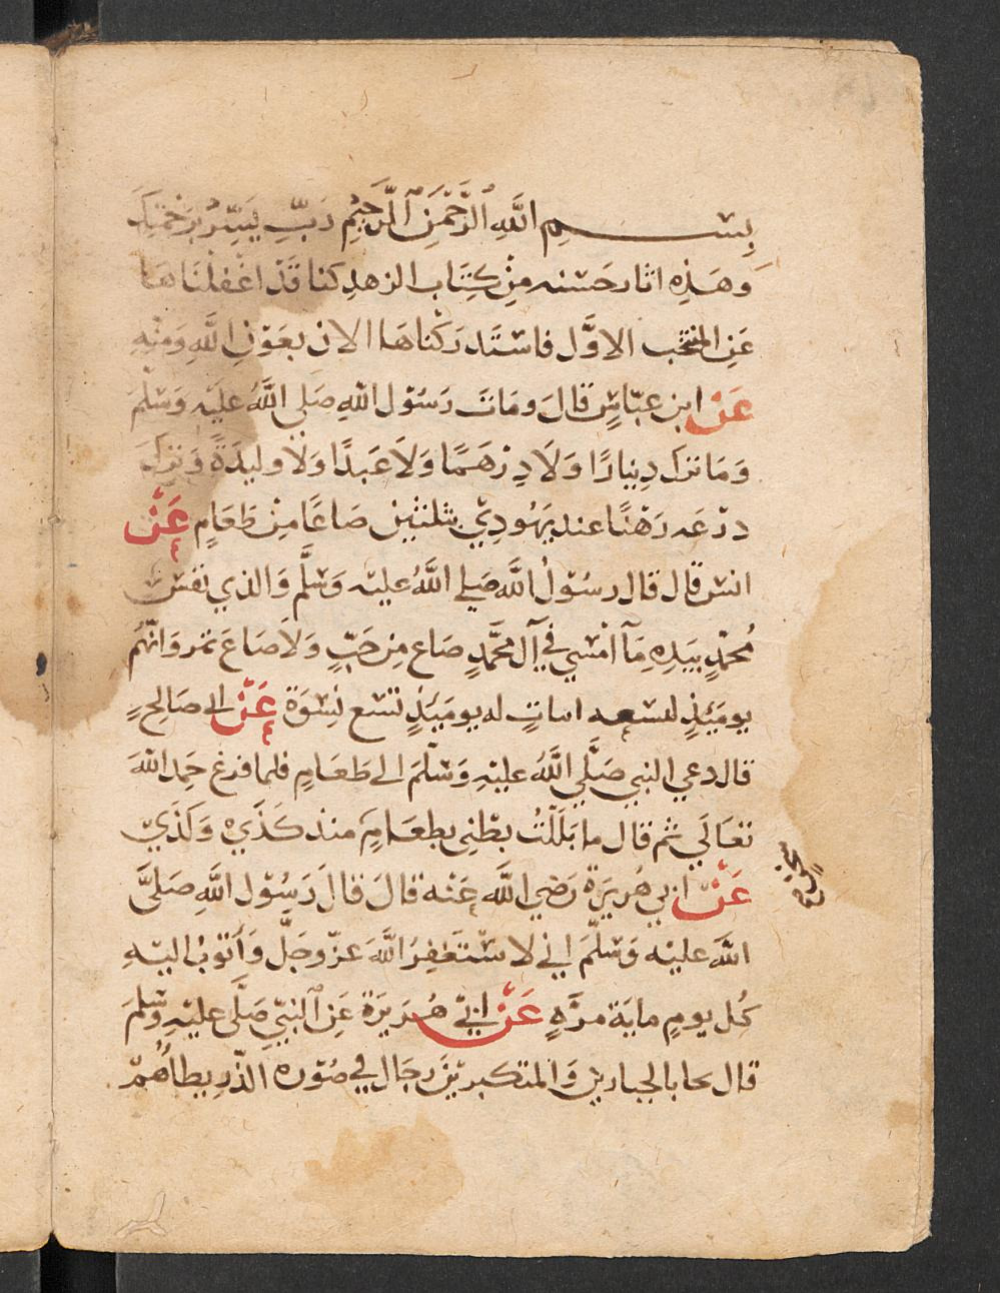 بِسْمِ اللَّهِ الرَّحْمَنِ الرَّحِيمِ رَبِّ يَسِّرْ بِرَحْمَتِكَ
وَهَذِهِ اثار حَسَنه مِنْ كِتَاب الزهدِ كنا قَدْ اغْفلْنَاهَا
عَنِ المنتخب الاوَّل فاسْتَدرَكْناهَا الان بعَوْنِ اللَّهِ وَمَنِّهِ
عَنْ ابن عبّاسٍ قالَ ومَات رَسُوْل اللهِ صَلى اللَّهُ عليْهِ وَسَلَّمَ
وَمَا ترَك دِينارًا وَلَا دِرْهَمًا وَلَا عَبدًا وَلَا وليدَةً وَترَكَ
درْعَه رَهْنًا عند يَهُودِيّ بثلثين صَاعًا مِنْ طَعَامٍ عَنْ
انس قال قال رسُوْلُ اللَّه صَلى اللَّهُ عليْه وَسَلَّم وَالذي نفسُ
مُحمّدٍ بيَدِهِ مَآ امْسَي في آل محمَّدٍ صاع مِن حَبّ وَلَا صَاعَ تمر وَانّهُم
يومَئذٍ لتسعه ابياتٍ له يومَئذٍ تسع نِسْوَة عَنْ ابي صَالحٍ
قال دعي النبي صَلَّي اللَّهُ عليْهِ وَسَلَّمَ الى طَعَامٍ فلما فرغ حَمِد اللهَ
تعَالَي ثم قال ما بَلَلْتُ بطني بطعَامٍ منذ كَذَيْ وَكَذَيْ
عَنْ ابي هُريرَة رَضي اللَّه عَنْه قالَ قالَ رَسُوْل اللَّهِ صَلىَّ
اللَّه عليْه وَسَلَّمَ اني لاسْتَغفِرُ اللَّهَ عزّ وجَلَّ وَأتوْبُ اليْهِ
كُل يومٍ مايَة مرَّهٍ عَنْ ابيْ هُرَيرَة عَنِ النبيّ صَلَّى عليْهِ وسَلمَ
قال يحا بالجبارين وَالمتكبرين رجَال في صُوْره الذّر يطأهُمْ